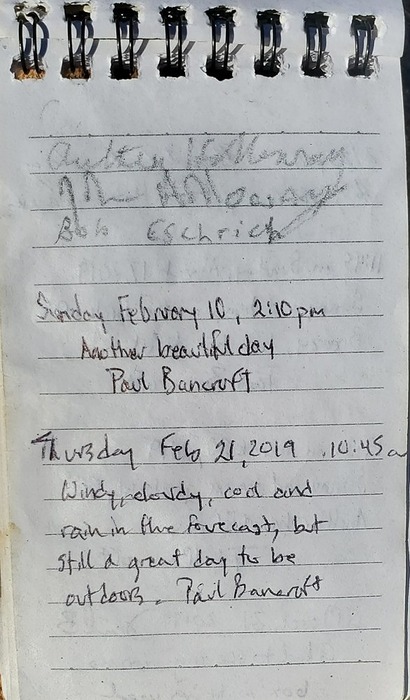 Bob Eschrich
Sunday February 10, 2:10pm
Another beautiful day
Paul Bancroft
Thursday Feb 21, 2019 10:45a
Windy, cloudy, cool and
rain in the forecast, but
still a great day to be
outdoors. Paul Bancroft